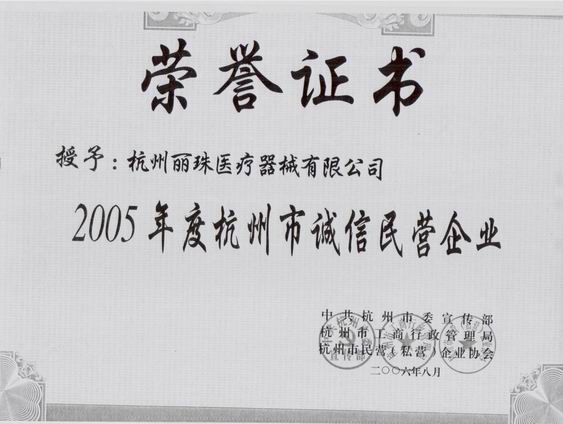 荣誉证书
授予：杭州丽珠医疗器械有限公司
2005年度杭州市诚信民营企业
中共杭州市委宣传部
杭州市工商行政管理局
杭州市民营(私营)企业协会
二〇〇六年八月